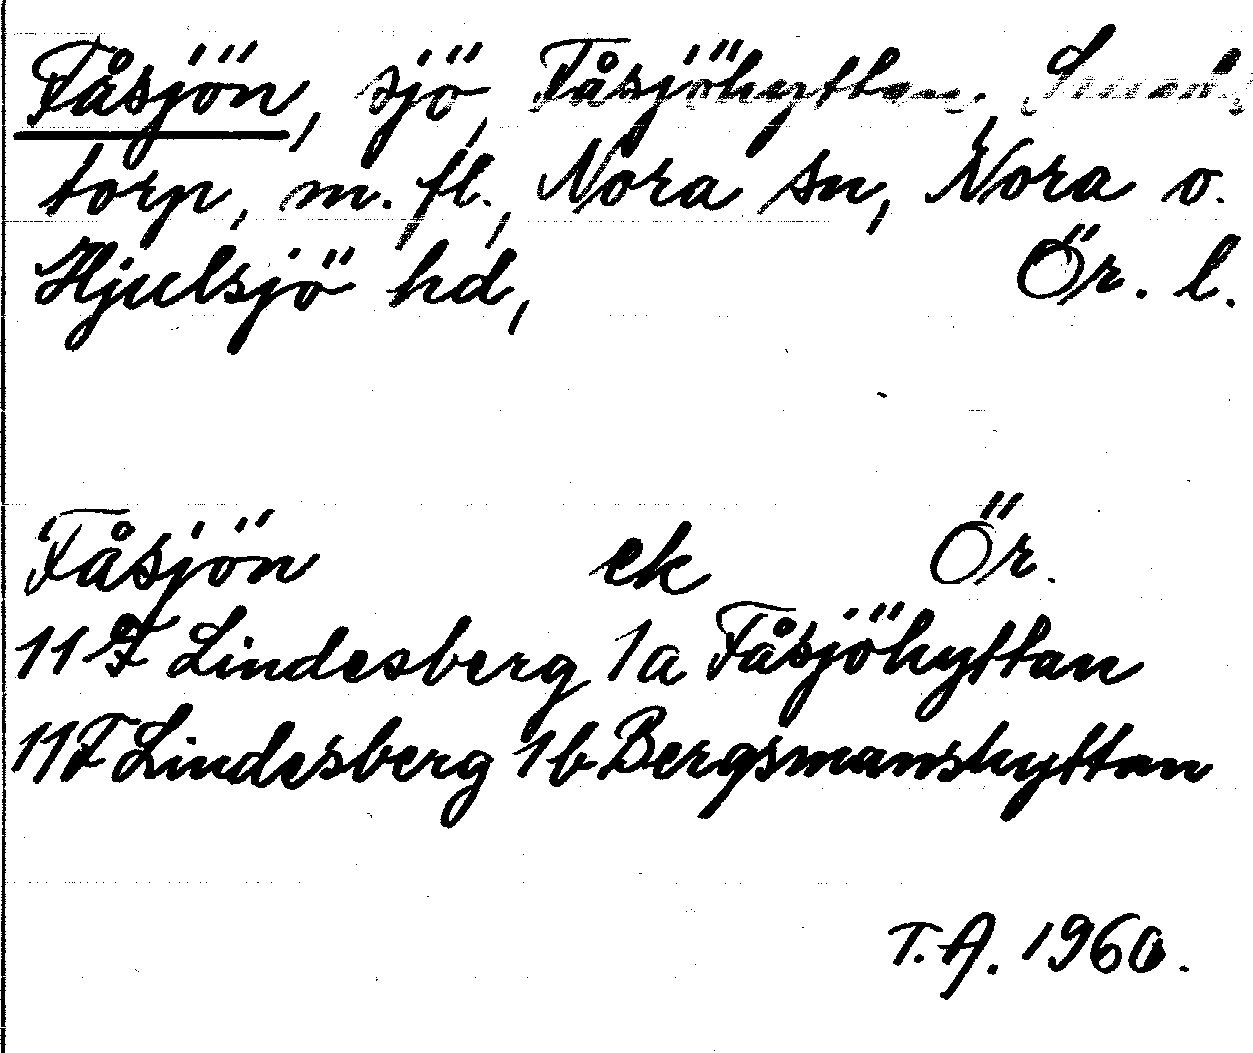 Fåsjön, sjö, Fåsjöhyttan,
torp, m. fl., Nora sn, Nora o.
Hjulsjö hd, Ör. l.
Fåsjön ek Ör.
11F Lindesberg 1a Fåsjöhyttan
11F Lindesberg 1b Bergsmanshyttan
T.A. 1960.